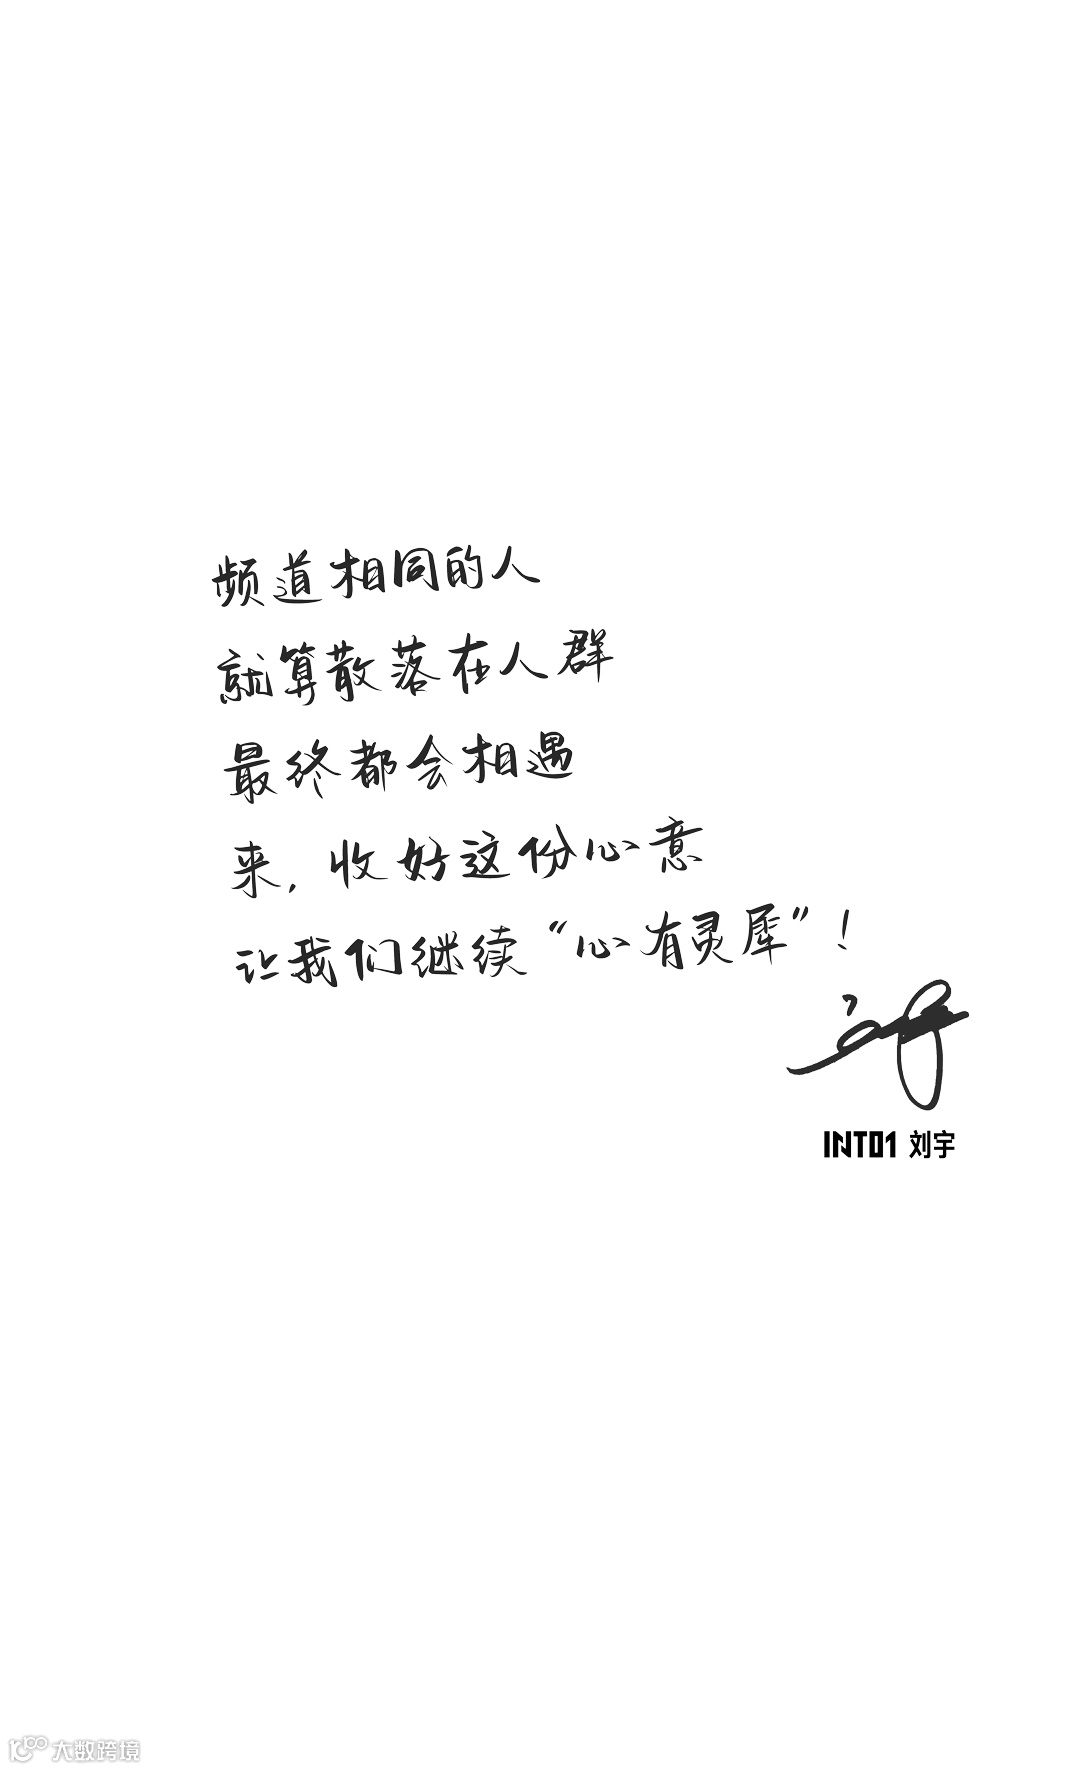 频道相同的人
就算散落在人群
最终都会相遇
来，收好这份心意
让我们继续“心有灵犀”！
刘宇
INTO1 刘宇
大数跨境